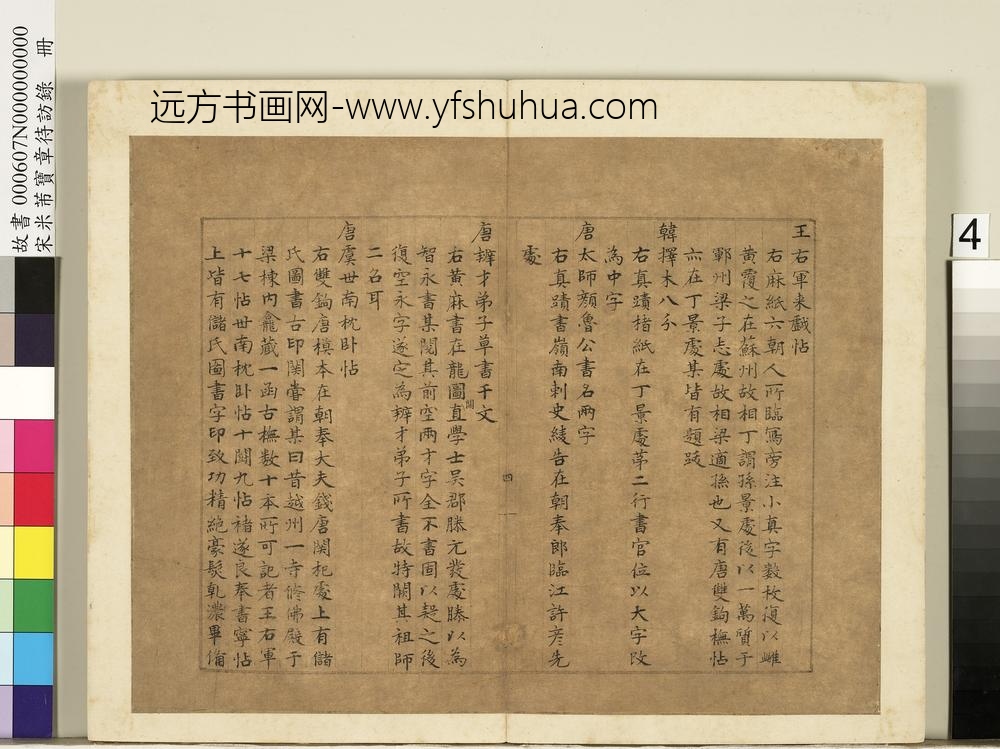 远方书画网-www.yfshuhua.com
故書 000607N000000000
宋米芾寶章待訪錄 冊
4
王右軍来戲帖
右麻紙六朝人所臨寫旁注小真字数枚復以雌
黄覆之在蘇州故相丁謂孫景處後以一萬質于
鄆州梁子志處故相梁適孫也又有唐雙鉤橅帖
亦在丁景處某皆有題跋
韓擇木八分
右真蹟楮紙在丁景處苐二行書官位以大字改
為中字
唐太師顏魯公書名兩字
右真蹟書嶺南刺史綾告在朝奉郎臨江許彦先
處
四
唐辯才弟子草書千文
右黄麻書在龍圖直學士吳郡滕元發處滕以為
智永書某閱其前空兩才字全不書固以疑之後
復空永字遂定為辯才弟子所書故特闕其祖師
二名耳
闕
唐虞世南枕卧帖
右雙鉤唐模本在朝奉大夫錢唐関杞處上有儲
氏圖書古印関嘗謂某曰昔越州一寺修佛殿于
梁棟内龕藏一函古橅数十本所可記者王右軍
十七帖世南枕卧帖十闕九帖褚遂良奉書寧帖
上皆有儲氏圖書字印致功精絶豪髮乹濃畢備